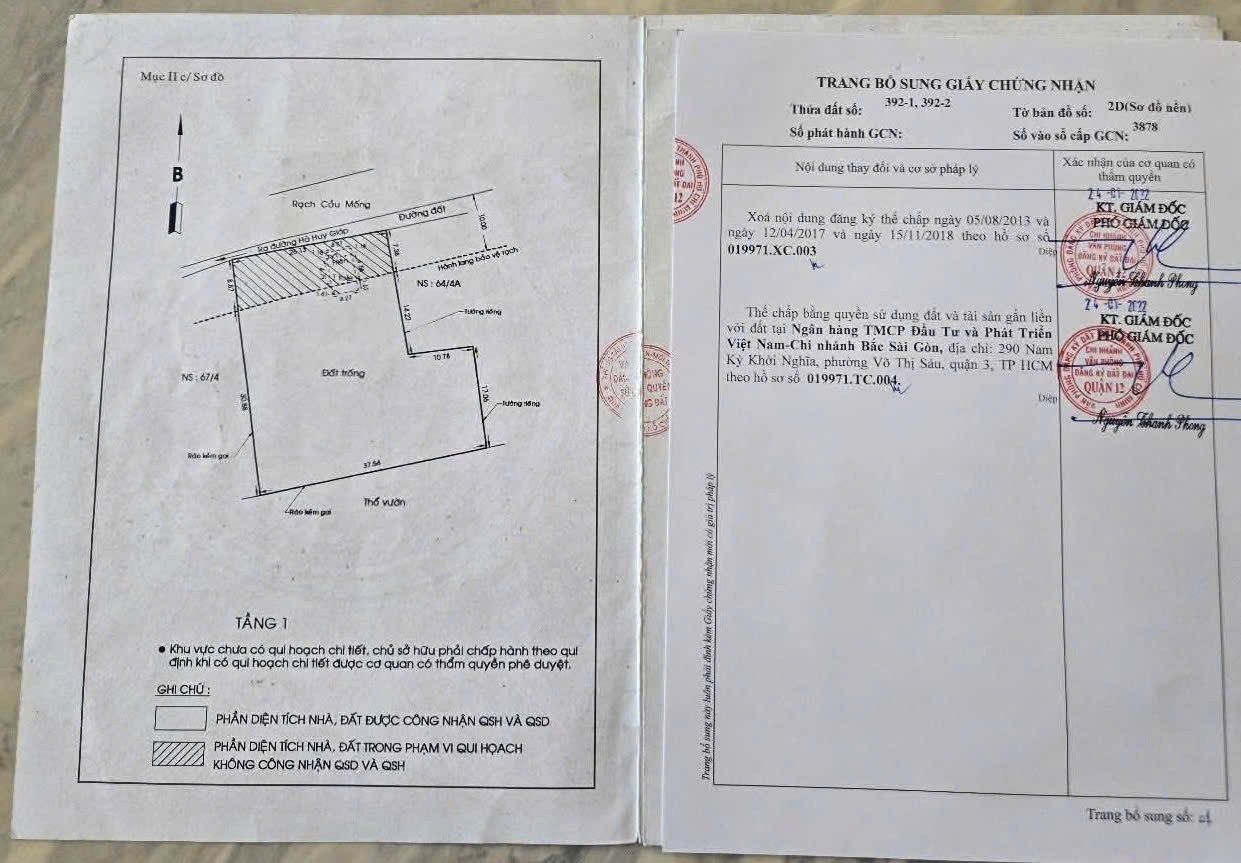 Mục II c/ Sơ đồ
B
Rạch Cầu Mống
Đường đất
Ra đường Hà Huy Giáp
10.00
7.36
8.67
Hành lang bảo vệ rạch
NS : 64/4A
14.22
Tường riêng
10.78
NS : 67/4
Đất trống
17.06
Tường riêng
30.88
Rào kẽm gai
37.54
Thổ vườn
Rào kẽm gai
TẦNG 1
● Khu vực chưa có qui hoạch chi tiết, chủ sở hữu phải chấp hành theo qui
định khi có qui hoạch chi tiết được cơ quan có thẩm quyền phê duyệt.
GHI CHÚ :
PHẦN DIỆN TÍCH NHÀ, ĐẤT ĐƯỢC CÔNG NHẬN QSH VÀ QSD
PHẦN DIỆN TÍCH NHÀ, ĐẤT TRONG PHẠM VI QUI HOẠCH
KHÔNG CÔNG NHẬN QSD VÀ QSH
TRANG BỔ SUNG GIẤY CHỨNG NHẬN
Thửa đất số: 392-1, 392-2
Tờ bản đồ số: 2D(Sơ đồ nền)
Số phát hành GCN:
Số vào sổ cấp GCN: 3878
Nội dung thay đổi và cơ sở pháp lý
Xác nhận của cơ quan có
thẩm quyền
Xoá nội dung đăng ký thế chấp ngày 05/08/2013 và
ngày 12/04/2017 và ngày 15/11/2018 theo hồ sơ số
019971.XC.003
Diệp
24 -01- 2022
KT. GIÁM ĐỐC
PHÓ GIÁM ĐỐC
CHI NHÁNH
VĂN PHÒNG
ĐĂNG KÝ ĐẤT ĐAI
QUẬN 12
Nguyễn Thanh Phong
Thế chấp bằng quyền sử dụng đất và tài sản gắn liền
với đất tại Ngân hàng TMCP Đầu Tư và Phát Triển
Việt Nam-Chi nhánh Bắc Sài Gòn, địa chỉ: 290 Nam
Kỳ Khởi Nghĩa, phường Võ Thị Sáu, quận 3, TP HCM
theo hồ sơ số 019971.TC.004.
Diệp
24 -01- 2022
KT. GIÁM ĐỐC
PHÓ GIÁM ĐỐC
CHI NHÁNH
VĂN PHÒNG
ĐĂNG KÝ ĐẤT ĐAI
QUẬN 12
Nguyễn Thanh Phong
Trang bổ sung này luôn phải đính kèm Giấy chứng nhận mới có giá trị pháp lý
Trang bổ sung số: